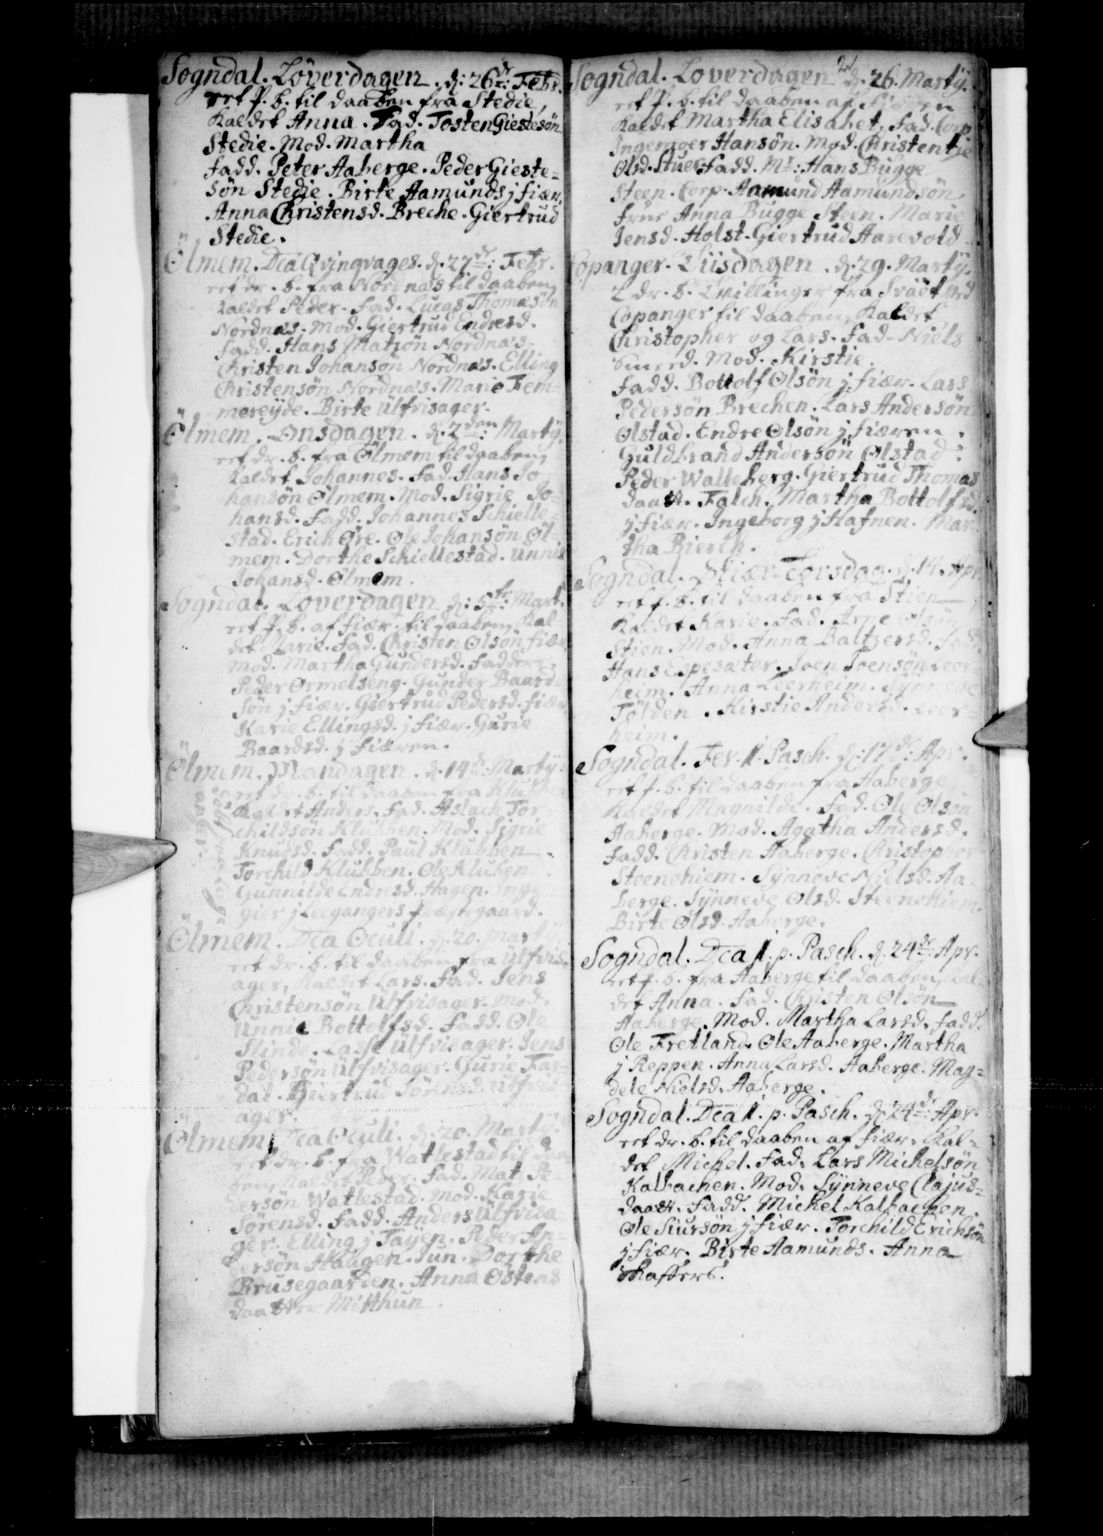 Sogndal. Løverdagen. d: 26de: Febr.
eet P. b. til daaben fra Stedie,
Kaldet Anna. Fad. Tosten Giestesøn
Stedie. Mod. Martha
Fadd. Peter Aaberge. Peder Gieste-
søn Stedie. Birte Aamunds j fiær.
Anna Christensd. Breche. Giertrud
Stedie.
Ølmem. Dca Qvinqvages. d. 27de: Febr.
eet dr. b. fra Nordnæs til daaben,
kaldet Peder. Fad. Lucas Thomæsøn
Nordnæs. Mod. Giertrud Endresd.
Fadd. Hans Nordnæs.
Christen Johansøn Nordnæs. Elling
Christensøn Nordnæs. Marie Fem-
mereyde. Birte Ulfvisager.
Ølmem. Onsdagen. d. 2den: Martÿ.
eet dr. b. fra Ølmem til daaben,
Kaldet Johannes. Fad. Hans Jo-
hansøn Ølmem. Mod. Sigrie Jo-
hansd. Fadd. Johannes Schielle-
stad. Erich Øre. Ole Johansøn Øl-
mem. Dorthe Schiellestad. Unnie
Johansd. Ølmem.
Sogndal. Løverdagen d: 5te: Mart.
eet P. b. af fiær. til daaben, Kal
det Karie. Fad. Christen Olsøn fiær
Mod. Martha Gundersd. Faddere.
Peder Ormelseng. Gunder Baard-
søn j fiær. Giertrud Pedersd. fiær
Karie Ellingsd. j fiær. Gurie
Baardsd. j fiæren.
Ølmem. Mandagen. d. 14de: Martÿ.
eet dr. b. til daaben fra Klubben
Kaldet Anders. Fad. Aslach Tor-
childsøn Klubben. Mod. Sigrie
Knudsd. Fadd. Paul Klubben.
Torchild Klubben. Ole Klubben.
Gunnilde Endresd. Hagen. Inge
gier j Leegangers
Ølmem. Dca Oculi. d. 20. Martÿ
eet dr. b. til daaben fra Ulfvis-
ager, Kaldet Lars. Fad. Jens
Christensøn Ulfvisager. Mod.
Unnie Bottolfsd. Fadd. Ole
Slinde. Lasse Ulfvisager. Jens
Pedersøn Ulfvisager. Gurie Far-
dal. Giertrud Ulfvis-
ager.
Ølmem. Dca Oculi. d. 20. Martÿ.
et dr. b. fra Watlestad til daa-
ben, Kaldet Peder. Fad. Mat. Pe-
dersøn Watlestad. Mod. Karie
Sørensd. Fadd. Anders Ulfvisa-
ger. Elling j Tayen. Peder An-
dersøn Haugen. Jun. Dorthe
Brusegaarden. Anna Østens
daatter Mithun.
Sogndal. Løverdagen d. 26. Martÿ.
eet P. b. til daaben af fiæren
Kaldet Martha Elisabet. Fad. Corp.
Ingemoer Hansøn. Mod. Christentje
Olsd. Stue. Fadd. Mr: Hans Bugge
Steen. Corp. Aamund Aamundsøn.
Frue Anna Bugge Steen. Marie
Jensd. Holst. Giertrud Aarevold
Copanger. Tiisdagen. d. 29. Martÿ.
2 dr. b. Tvillinger fra
Copanger til daaben, Kaldet
Christopher og Lars. Fad. Niels
Mod. Kirstie.
Fadd. Bottolf Olsøn j fiær. Lars
Pedersøn Brechen. Lars Andersøn
Olstad. Endre Olsøn j fiæren.
Guldbrand Andersøn Olstad.
Peder Walleberg. Giertrud Thomas
daatt. Falch. Martha Bottolfsd.
j fiær. Ingeborg j Hafnen. Mar-
tha Biersch.
Sogndal. Skiær-Torsdag. d. 14. Apr.
eet P. b. til daaben fra Stien,
Kaldet Karie. Fad. Arne Olsøn
Stien. Mod. Anna Baltzersd. Fadd.
Hans Espesæter. Joen Joensøn Leer-
heim. Anna Leerheim. Sÿnneve
Følden. Kirstie Andersd. Leer-
heim.
Sogndal. Fer. 1. Pasch. d: 17de: Apr.
eet P. b. til daaben fra Aaberge,
Kaldet Magnilde. Fad. Ole Olsøn
Aaberge. Mod. Agatha Andersd.
Fadd. Christen Aaberge. Christopher
Steenehiem. Sÿnneve Nielsd. Aa-
berge. Sÿnneve Olsd. Steenehiem.
Birte Olsd. Aaberge.
Sogndal. Dca 1. p. Pasch. d. 24de: Apr.
eet P. b. fra Aaberge til daaben, Kal-
det Anna. Fad. Christen Olsøn
Aaberge. Mod. Martha Larsd. Fadd.
Ole Fretland. Ole Aaberge. Martha
j Reppen. Anna Larsd. Aaberge. Mag-
dele Nielsd. Aaberge.
Sogndal. Dca 1. p. Pasch. d. 24de: Apr.
eet dr. b. til daaben af fiær. Kal-
det Michel. Fad. Lars Michelsøn
Kalbachen. Mod. Sÿnneve Clajus-
daatt. Fadd. Michel Kalbachen
Ole Siursøn j fiær. Torchild Erichsøn
j fiær. Birte Aamunds. Anna
Skaffers.